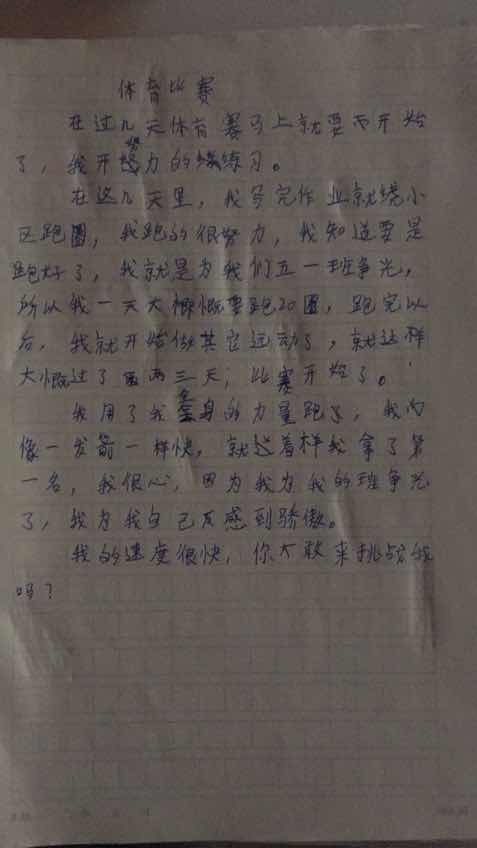 体育比赛
在过几天体育赛马上就要开始
了，我开努力的练习。
在这几天里，我写完作业就绕小
区跑圈，我跑的很努力，我知道要是
跑好了，我就是为我们五一班争光，
所以我一天大慨要跑20圈，跑完以
后，我就开始做其它运动了，就这样
大慨过了两三天，比赛开始了。
我用了我全身的力量跑了，我向
像一发箭一样快，就这着样我拿了第
一名，我很心，因为我为我的班争光
了，我为我自己反感到骄傲。
我的速度很快，你不敢来挑战我
吗？